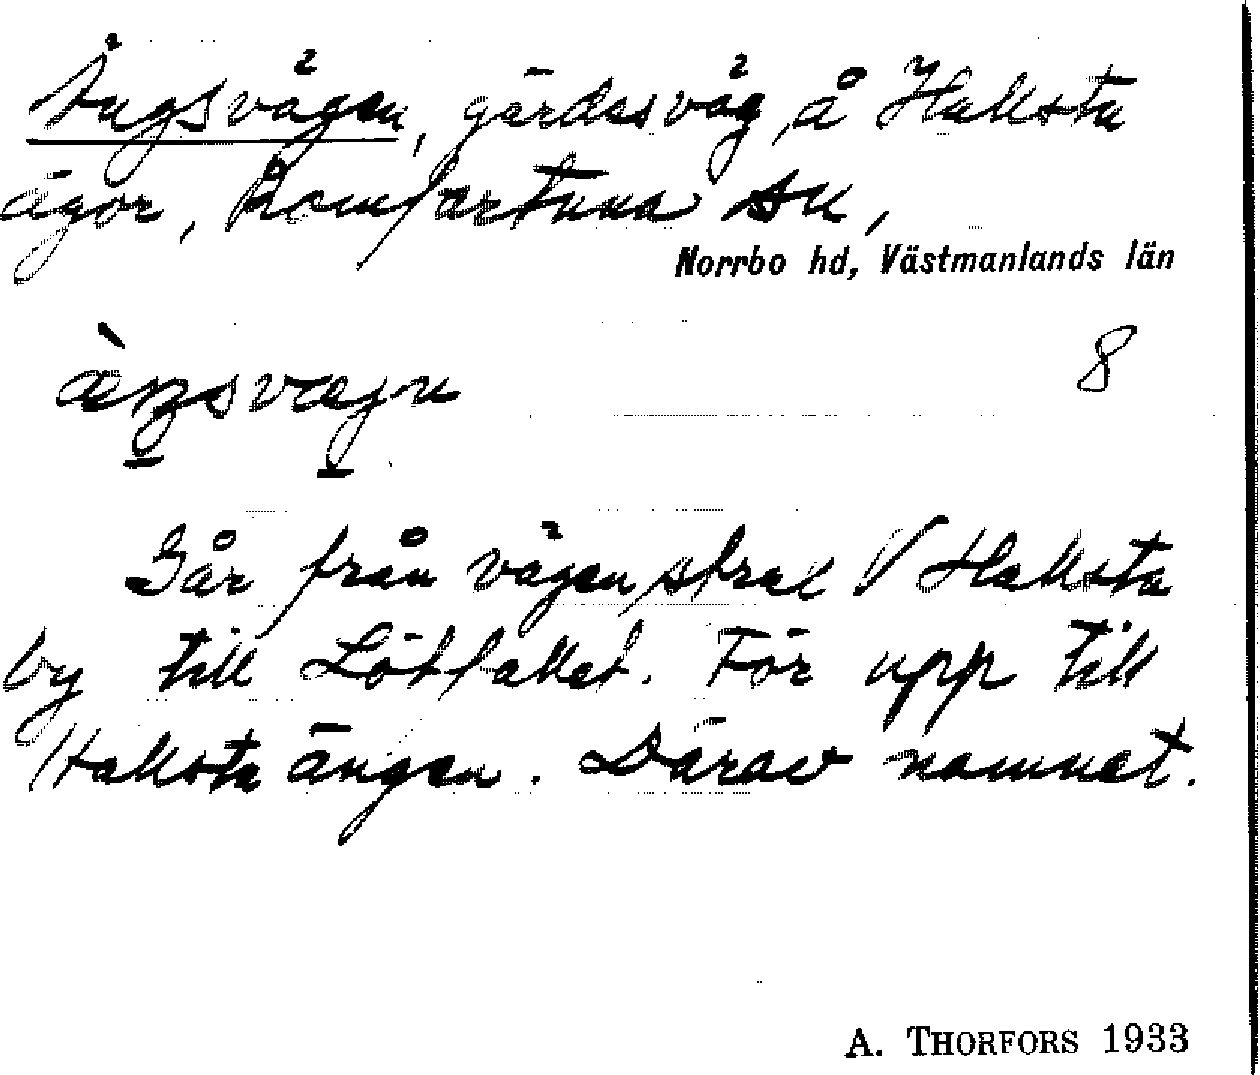 Ängsvägen, gärdesväg, å Hallsta
ägor, Romfartuna sn,
Norrbo hd, Västmanlands län
8
Går från vägen strax V Hallsta
by till Lötfallet. För upp till
Hallsta ängen. Därav namnet.
A. THORFORS 1933